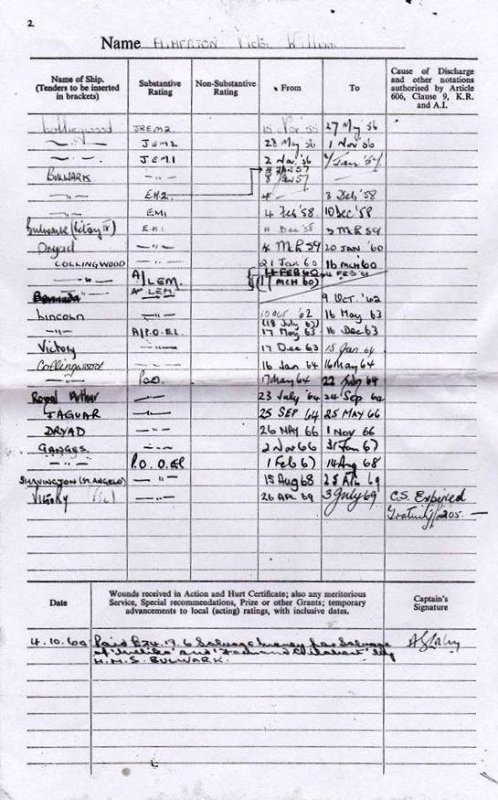 2.
Name Victor William
Name of Ship. (Tenders to be inserted in brackets) Substantive Rating Non-Substantive Rating From To Cause of Discharge and other notations authorised by Article 606, Clause 9, K.R. and A.I.
Collingwood JREM2 15 Nov '55 27 May 56
—"— JEM2 28 May 56 1 Nov '56
—"— JEM1 2 Nov '56
BULWARK 8 Jan 57 —"—
—"— EM2 —"— 3 Feb '58
—"— EM1 4 Feb '58 10 Dec '58
Bulwark (Victory IV) EM1 11 Dec 58 3 MR 59
Dryad —"— 4 MR 59 20 JAN '60
COLLINGWOOD —"— 21 Jan 60 16 MCH 60
—"— A/LEM (17 MCH 60)
Bermuda LEM 9 Oct. '62
Lincoln —"— 10 Oct '62 16 May 63
(18 July 63)
—"— A/P.O.El 17 May 63 16 Dec 63
Victory —"— 17 Dec 63 15 Jan 64
Collingwood —"— 16 Jan 64 16 May 64
—"— 17 May 64 22 July 64
Royal Arthur —"— 23 July '64 24 Sep 64
JAGUAR —"— 25 SEP 64 25 MAY 66
DRYAD —"— 26 MAY 66 1 NOV 66
GANGES —"— 2 Nov 66 31 Jan 67
—"— P.O.O.El 1 Feb 67 14 Aug 68
(ST ANGELO) —"— 15 Aug 68 25 Apr 69
Victory —"— 26 APR 69 3 July 69 C.S. Expired
Gratuity £205 —
Date Wounds received in Action and Hurt Certificate; also any meritorious Service, Special recommendations, Prize or other Grants; temporary advancements to local (acting) ratings, with inclusive dates. Captain's Signature
4.10.60 Paid £74.17.6 Salvage money for Salvage
of and by
H.M.S. BULWARK.